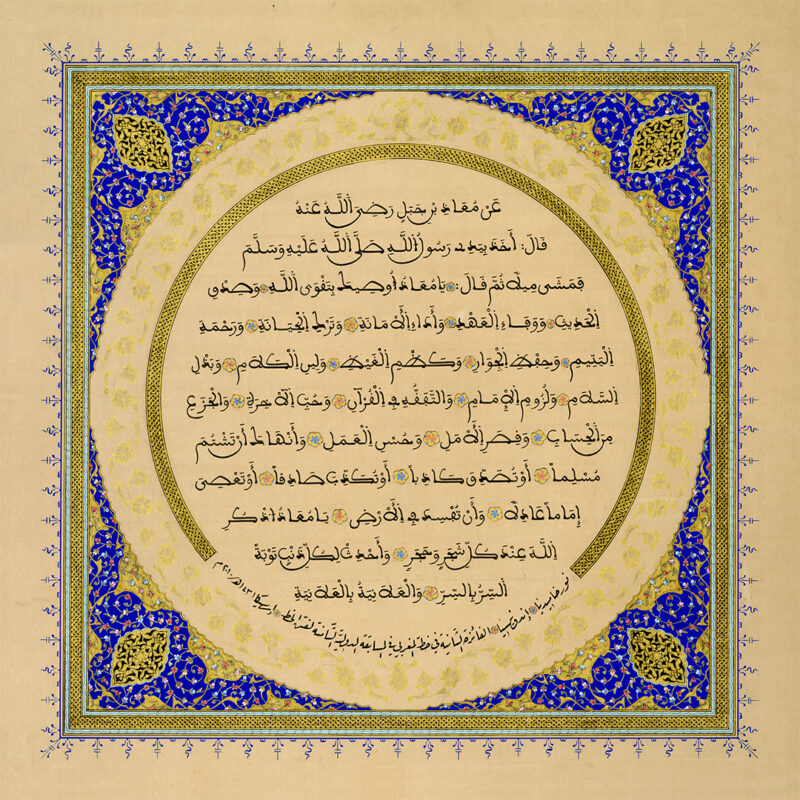 عَن مُعَاذِ بْنِ جَبَلٍ رَضِيَ اللَّهُ عَنْهُ
قَالَ: أَخَذَ بِيَدِي رَسُولُ اللَّهِ صَلَّى اللَّهُ عَلَيْهِ وَسَلَّمَ
فَمَشَى مِيلًا ثُمَّ قَالَ: يَا مُعَاذُ أُوصِيكَ بِتَقْوَى اللَّهِ وَصِدْقِ
الْحَدِيثِ وَوَفَاءِ الْعَهْدِ وَأَدَاءِ الْأَمَانَةِ وَتَرْكِ الْخِيَانَةِ وَرَحْمَةِ
الْيَتِيمِ وَحِفْظِ الْجِوَارِ وَكَظْمِ الْغَيْظِ وَلِينِ الْكَلَامِ وَبَذْلِ
السَّلَامِ وَلُزُومِ الْإِمَامِ وَالتَّفَقُّهِ فِي الْقُرْآنِ وَحُبِّ الْآخِرَةِ وَالْجَزَعِ
مِنَ الْحِسَابِ وَقِصَرِ الْأَمَلِ وَحُسْنِ الْعَمَلِ وَأَنْهَاكَ أَنْ تَشْتُمَ
مُسْلِماً أَوْ تُصَدِّقَ كَاذِباً أَوْ تُكَذِّبَ صَادِقاً أَوْ تَعْصِيَ
إِمَاماً عَادِلًا وَأَنْ تُفْسِدَ فِي الْأَرْضِ يَا مُعَاذُ اذْكُرِ
اللَّهَ عِنْدَ كُلِّ شَجَرٍ وَحَجَرٍ وَأَحْدِثْ لِكُلِّ ذَنْبٍ تَوْبَةً
السِّرُّ بِالسِّرِّ وَالْعَلَانِيَةُ بِالْعَلَانِيَةِ
الفائزة الثانية في خط المغربي في المسابقة الدولية الثامنة لفن الخط